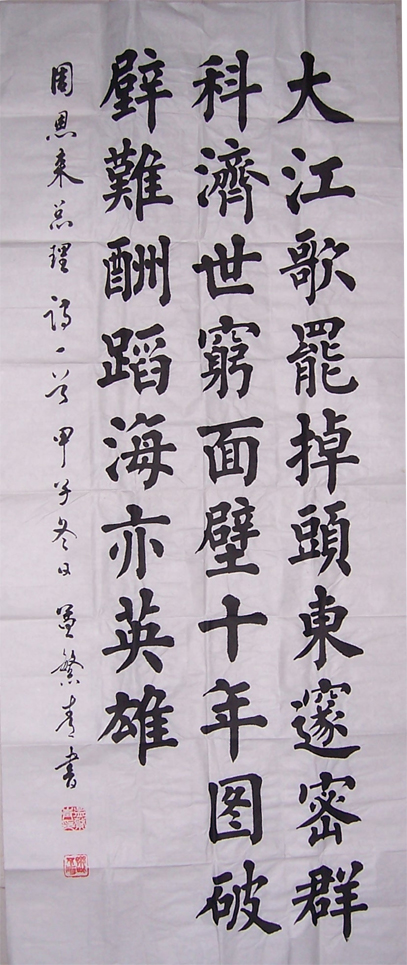 大江歌罷掉頭東邃密群
科濟世窮面壁十年图破
壁難酬蹈海亦英雄
周恩来总理诗一首甲子冬日孟繁青書